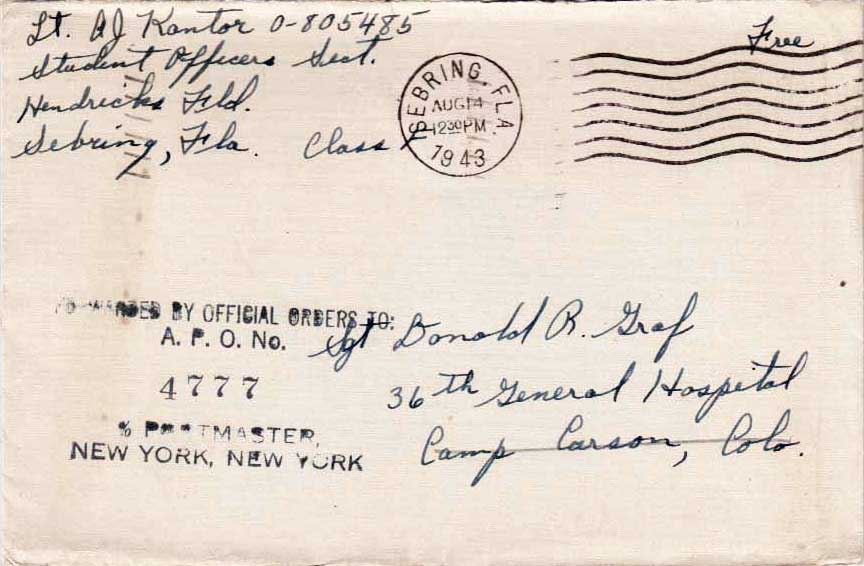 Lt. AJ Kantor O-805485
Student Officers Sect.
Hendricks Fld.
Sebring, Fla. Class
Free
SEBRING, FLA
AUG 14
12 30 PM
1943
FORWARDED BY OFFICIAL ORDERS TO:
A. P. O. No.
4777
% POSTMASTER,
NEW YORK, NEW YORK
Sgt Donald R. Graf
36th General Hospital
Camp Carson, Colo.